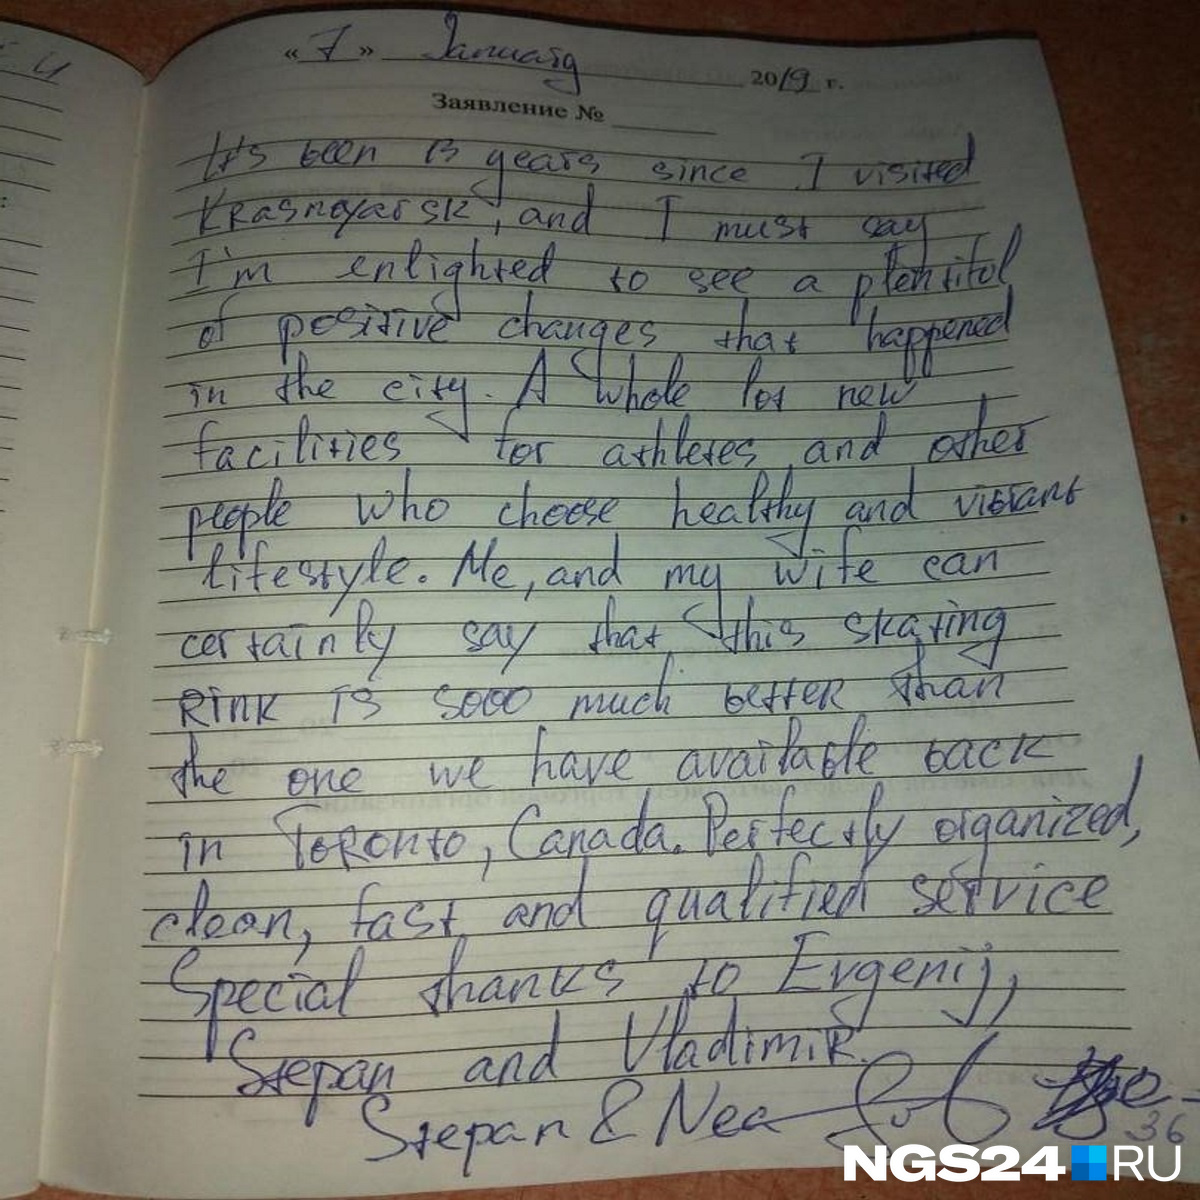 «7» January 2019 г.
Заявление №
It's been 13 years since I visited
Krasnoyarsk, and I must say
I'm enlighted to see a plentitol
of positive changes that happened
in the city. A whole lot new
facilities for athletes and other
people who choose healthy and vibrant
lifestyle. Me, and my wife can
certainly say that this skating
Rink is sooo much better than
the one we have available back
in Toronto, Canada. Perfectly organized,
clean, fast and qualified service
Special thanks to Evgenij,
Stepan and Vladimir.
Stepan & Nea
36
NGS24.RU